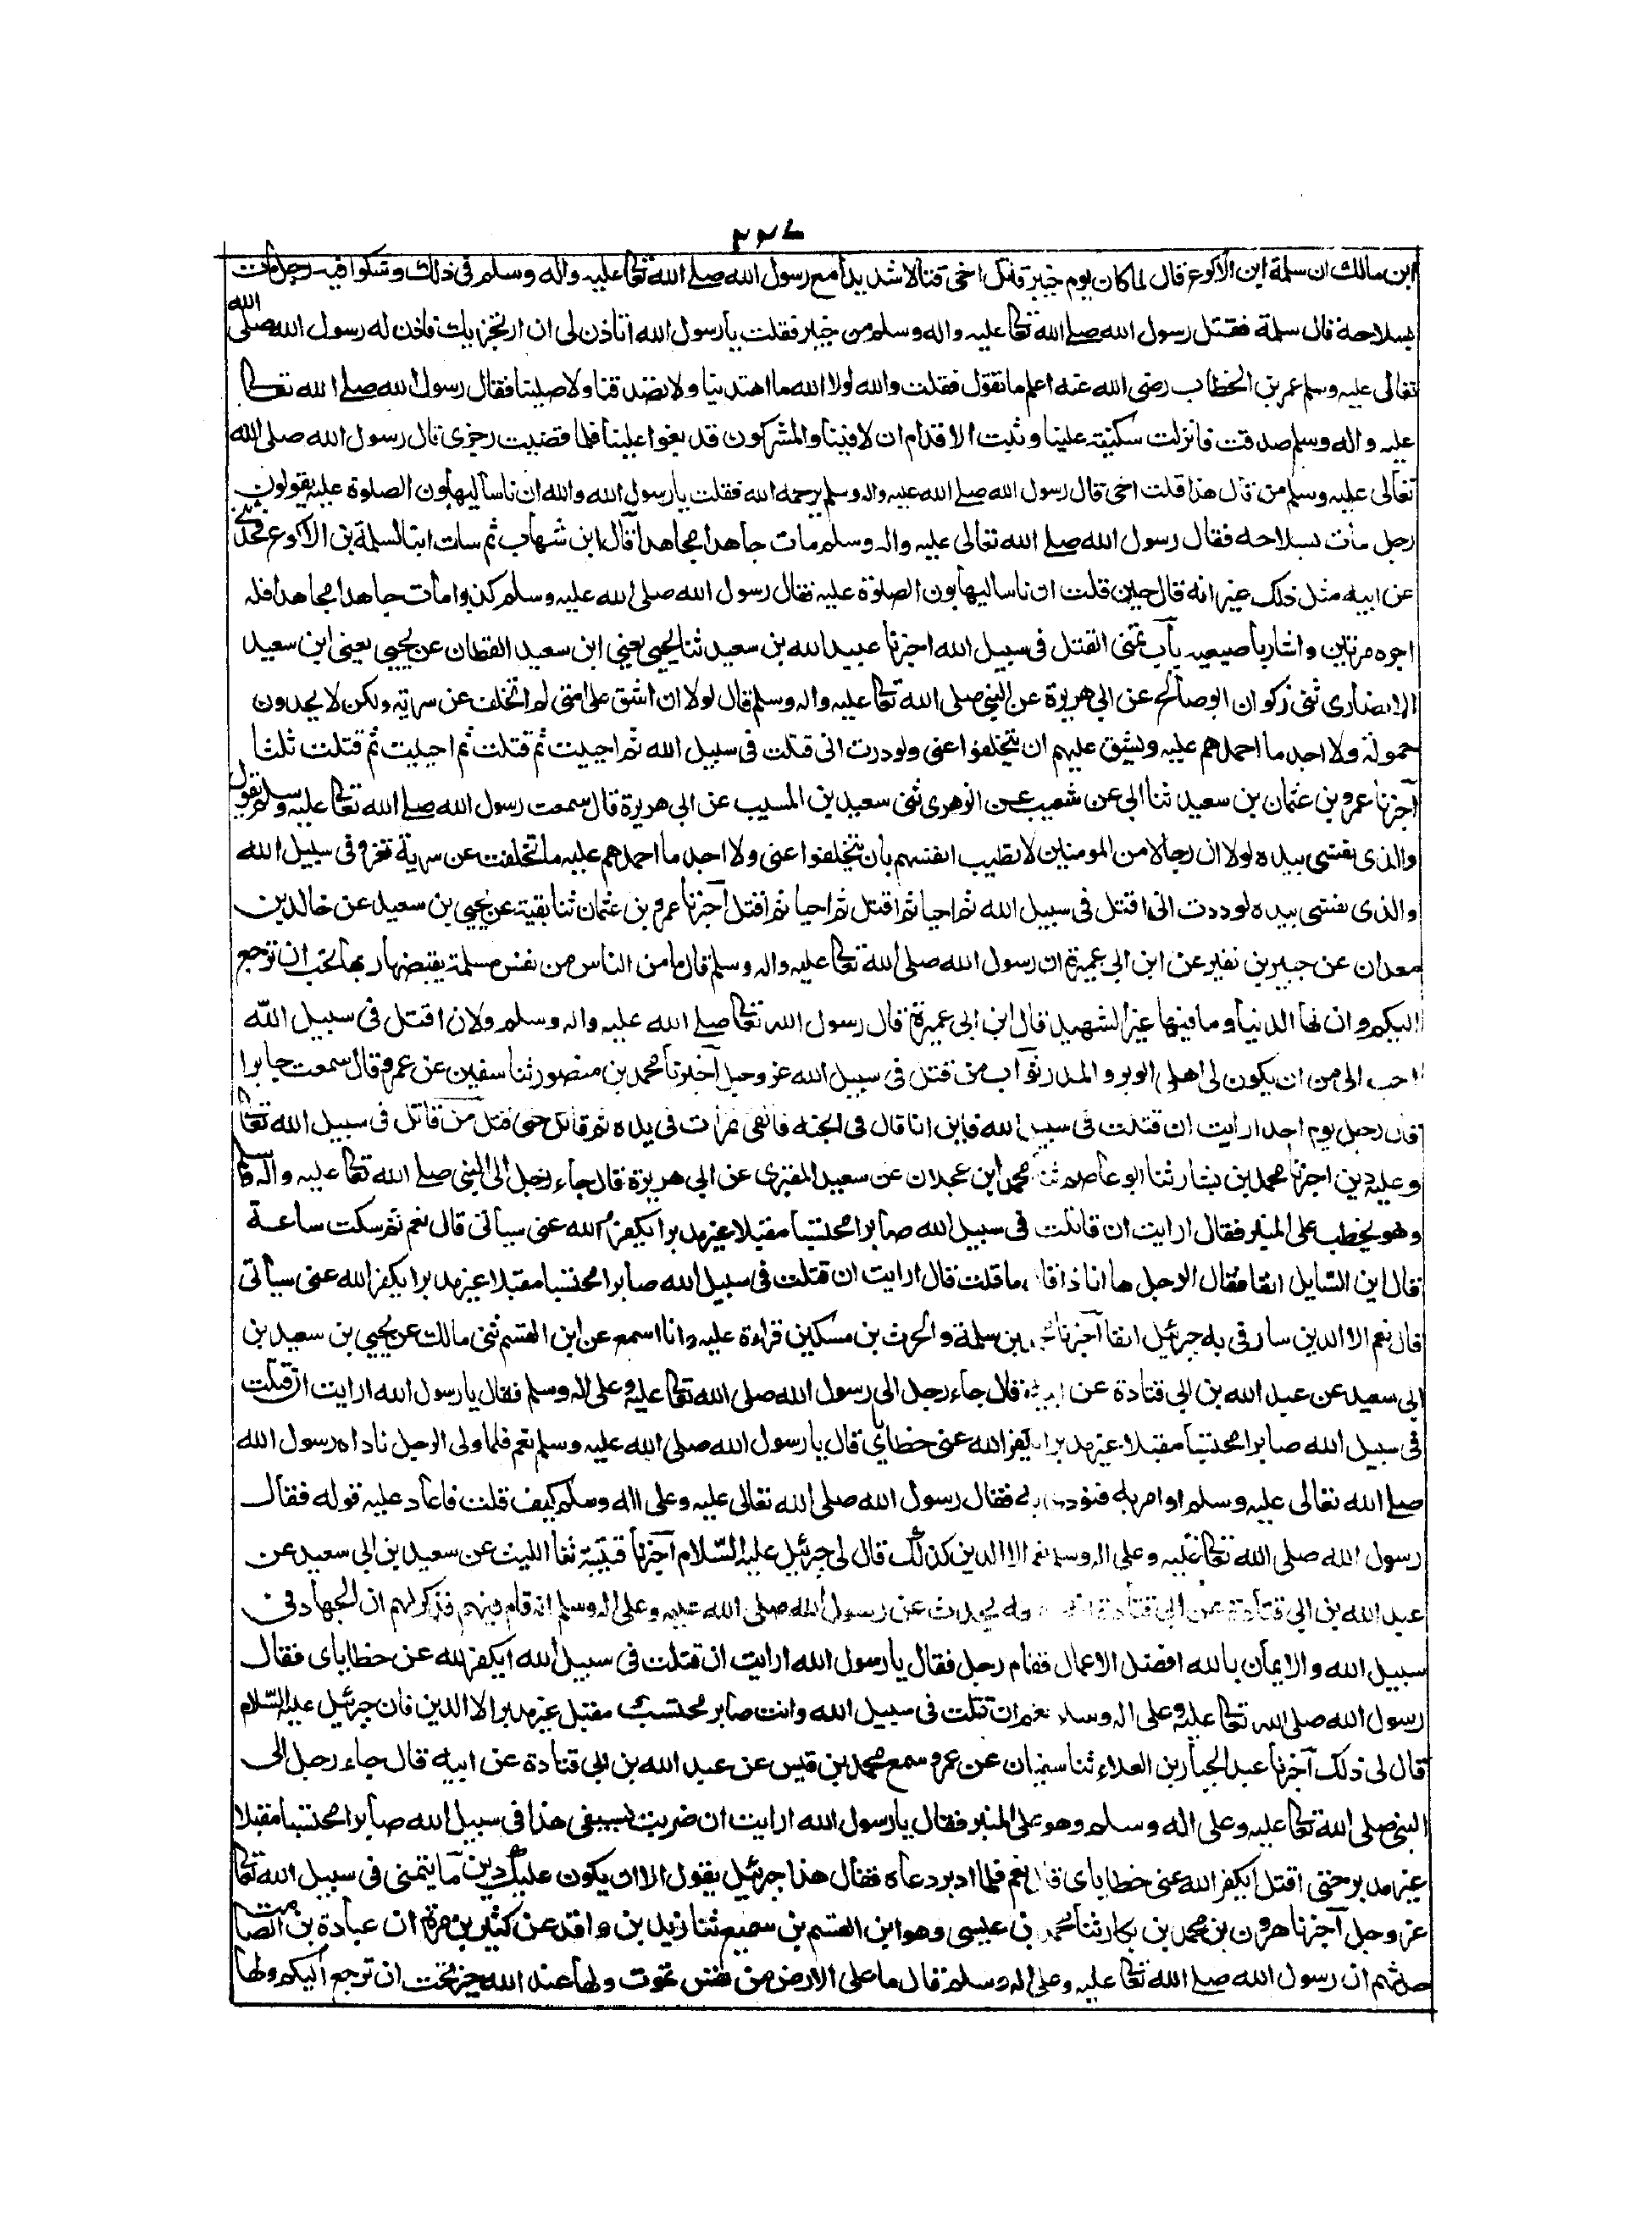 ٢٢٧
ابن مالك ان سلمة ابن الاكوع قال لما كان يوم خيبر قاتل اخى قتالا شديدا مع رسول الله صلے الله تعالى عليه واله وسلم فى ذلك وشكوا فيه رجل مات
بسلاحه قال سلمة فقفل رسول الله صلے الله تعالى عليه واله وسلم من خيبر فقلت يا رسول الله اتاذن لى ان ارتجز بك فاذن له رسول الله صلى الله
تعالى عليه وسلم عمر بن الخطاب رضى الله عنه اعلم ما تقول فقلت والله لولا الله ما اهتدينا ولا تصدقنا ولا صلينا فقال رسول الله صلے الله تعالى
عليه واله وسلم صدقت فانزلت سكينة علينا وثبت الاقدام ان لاقينا والمشركون قد بغوا علينا فلما قضيت رجزى قال رسول الله صلى الله
تعالى عليه وسلم من قال هذا قلت اخى قال رسول الله صلے الله عليه واله وسلم يرحمه الله فقلت يا رسول الله والله ان ناسا ليهابون الصلوة عليه يقولون
رجل مات بسلاحه فقال رسول الله صلے الله تعالى عليه واله وسلم مات جاهدا مجاهدا قال ابن شهاب ثم سات ابنا لسلمة بن الاكوع فحدثنى
عن ابيه مثل ذلك غير انه قال حين قلت ان ناسا ليهابون الصلوة عليه فقال رسول الله صلى الله عليه وسلم كذبوا مات جاهدا مجاهدا فله
اجره مرتين واشار باصبعيه باب تمنى القتل فى سبيل الله اخبرنا عبيد الله بن سعيد ثنا يحيى يعنى ابن سعيد القطان عن يحيى يعنى ابن سعيد
الانصارى ثنى ذكوان ابو صالح عن ابى هريرة عن النبى صلى الله تعالى عليه واله وسلم قال لولا ان اشق على امتى لم اتخلف عن سرية ولكن لا يجدون
حمولة ولا اجد ما احملهم عليه ويشق عليهم ان يتخلفوا عنى ولوددت انى قتلت فى سبيل الله ثم احييت ثم قتلت ثم احييت ثم قتلت ثلثا
اخبرنا عمرو بن عثمان بن سعيد ثنا ابى عن شعيب عن الزهرى ثنى سعيد بن المسيب عن ابى هريرة قال سمعت رسول الله صلے الله تعالى عليه وسلم يقول
والذى نفسى بيده لولا ان رجالا من المومنين لا تطيب انفسهم بان يتخلفوا عنى ولا اجد ما احملهم عليه ما تخلفت عن سرية تغزو فى سبيل الله
والذى نفسى بيده لوددت انى اقتل فى سبيل الله ثم احيا ثم اقتل ثم احيا ثم اقتل اخبرنا عمرو بن عثمان ثنا بقية عن يحيى بن سعيد عن خالد بن
معدان عن جبير بن نفير عن ابن ابى عميرة ان رسول الله صلى الله تعالى عليه واله وسلم قال ما من الناس من نفس مسلمة يقبضها ربها تحب ان ترجع
اليكم وان لها الدنيا وما فيها غير الشهيد قال ابن ابى عميرة قال رسول الله تعالى صلے الله عليه واله وسلم ولان اقتل فى سبيل الله
احب الى من ان يكون لى اهل الوبر والمدر ثواب من قتل فى سبيل الله عز وجل اخبرنا محمد بن منصور ثنا سفين عن عمرو قال سمعت جابرا
قال رجل يوم احد ارايت ان قتلت فى سبيل الله فاين انا قال فى الجنة فالقى تمرات فى يده ثم قاتل حتى قتل من قاتل فى سبيل الله تعالى
وعليه دين اخبرنا محمد بن بشار ثنا ابو عاصم ثنا محمد ابن عجلان عن سعيد المقبرى عن ابى هريرة قال جاء رجل الى النبى صلے الله تعالى عليه واله وسلم
وهو يخطب على المنبر فقال ارايت ان قاتلت فى سبيل الله صابرا محتسبا مقبلا غير مدبر ايكفر الله عنى سياتى قال نعم ثم سكت ساعة
قال اين السايل انفا فقال الرجل ها انا ذا قال ما قلت قال ارايت ان قتلت فى سبيل الله صابرا محتسبا مقبلا غير مدبر ايكفر الله عنى سياتى
قال نعم الا الدين سارنى به جبرئيل انفا اخبرنا بن سلمة والحرث بن مسكين قراءة عليه وانا اسمع عن ابن القسم ثنى مالك عن يحيى بن سعيد بن
ابى سعيد عن عبد الله بن ابى قتادة عن ابيه قال جاء رجل الى رسول الله صلى الله تعالى عليه وعلى اله وسلم فقال يا رسول الله ارايت ان قتلت
فى سبيل الله صابرا محتسبا مقبلا غير مدبر ايكفر الله عنى خطاياى قال يا رسول الله صلى الله عليه وسلم نعم فلما ولى الرجل ناداه رسول الله
صلے الله تعالى عليه وسلم او امر به فنودى له فقال رسول الله صلى الله تعالى عليه وعلى اله وسلم كيف قلت فاعاد عليه قوله فقال
رسول الله صلى الله تعالى عليه وعلى اله وسلم نعم الا الدين كذلك قال لى جبرئيل عليه السلام اخبرنا قتيبة ثنا الليث عن سعيد بن ابى سعيد عن
عبد الله بن ابى قتادة عن ابى قتادة يحدث عن رسول الله صلى الله عليه وعلى اله وسلم انه قام فيهم فذكر لهم ان الجهاد فى
سبيل الله والايمان بالله افضل الاعمال فقام رجل فقال يا رسول الله ارايت ان قتلت فى سبيل الله ايكفر الله عن خطاياى فقال
رسول الله صلى الله تعالى عليه وعلى اله وسلم نعم ان قتلت فى سبيل الله وانت صابر محتسب مقبل غير مدبر الا الدين فان جبرئيل عليه السلام
قال لى ذلك اخبرنا عبد الجبار بن العلاء ثنا سفيان عن عمرو سمع محمد بن قيس عن عبد الله بن ابى قتادة عن ابيه قال جاء رجل الى
النبى صلى الله تعالى عليه وعلى اله وسلم وهو على المنبر فقال يا رسول الله ارايت ان ضربت بسيفى هذا فى سبيل الله صابرا محتسبا مقبلا
غير مدبر حتى اقتل ايكفر الله عنى خطاياى قال نعم فلما ادبر دعاه فقال هذا جبرئيل يقول الا ان يكون عليك دين ما يتمنى فى سبيل الله تعالى
عز وجل اخبرنا هرون بن محمد بن بكار ثنا محمد بن عيسى وهو ابن القسم بن سميع ثنا زيد بن واقد عن كثير بن مرة ان عبادة بن الصامت
حدثهم ان رسول الله صلے الله تعالى عليه وعلى اله وسلم قال ما على الارض من نفس تموت ولها عند الله خير تحب ان ترجع اليكم ولها